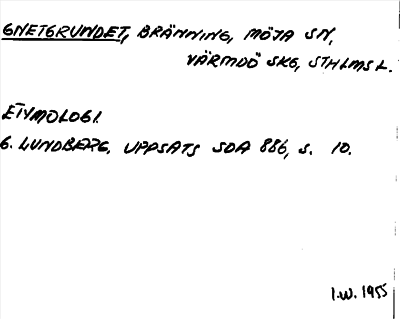 GNETGRUNDET, BRÄNNING, MÖJA SN,
VÄRMDÖ SKG, STHLMS L.
ETYMOLOGI.
G. LUNDBERG. UPPSATS SDA 886, S. 10.
I.W. 1955